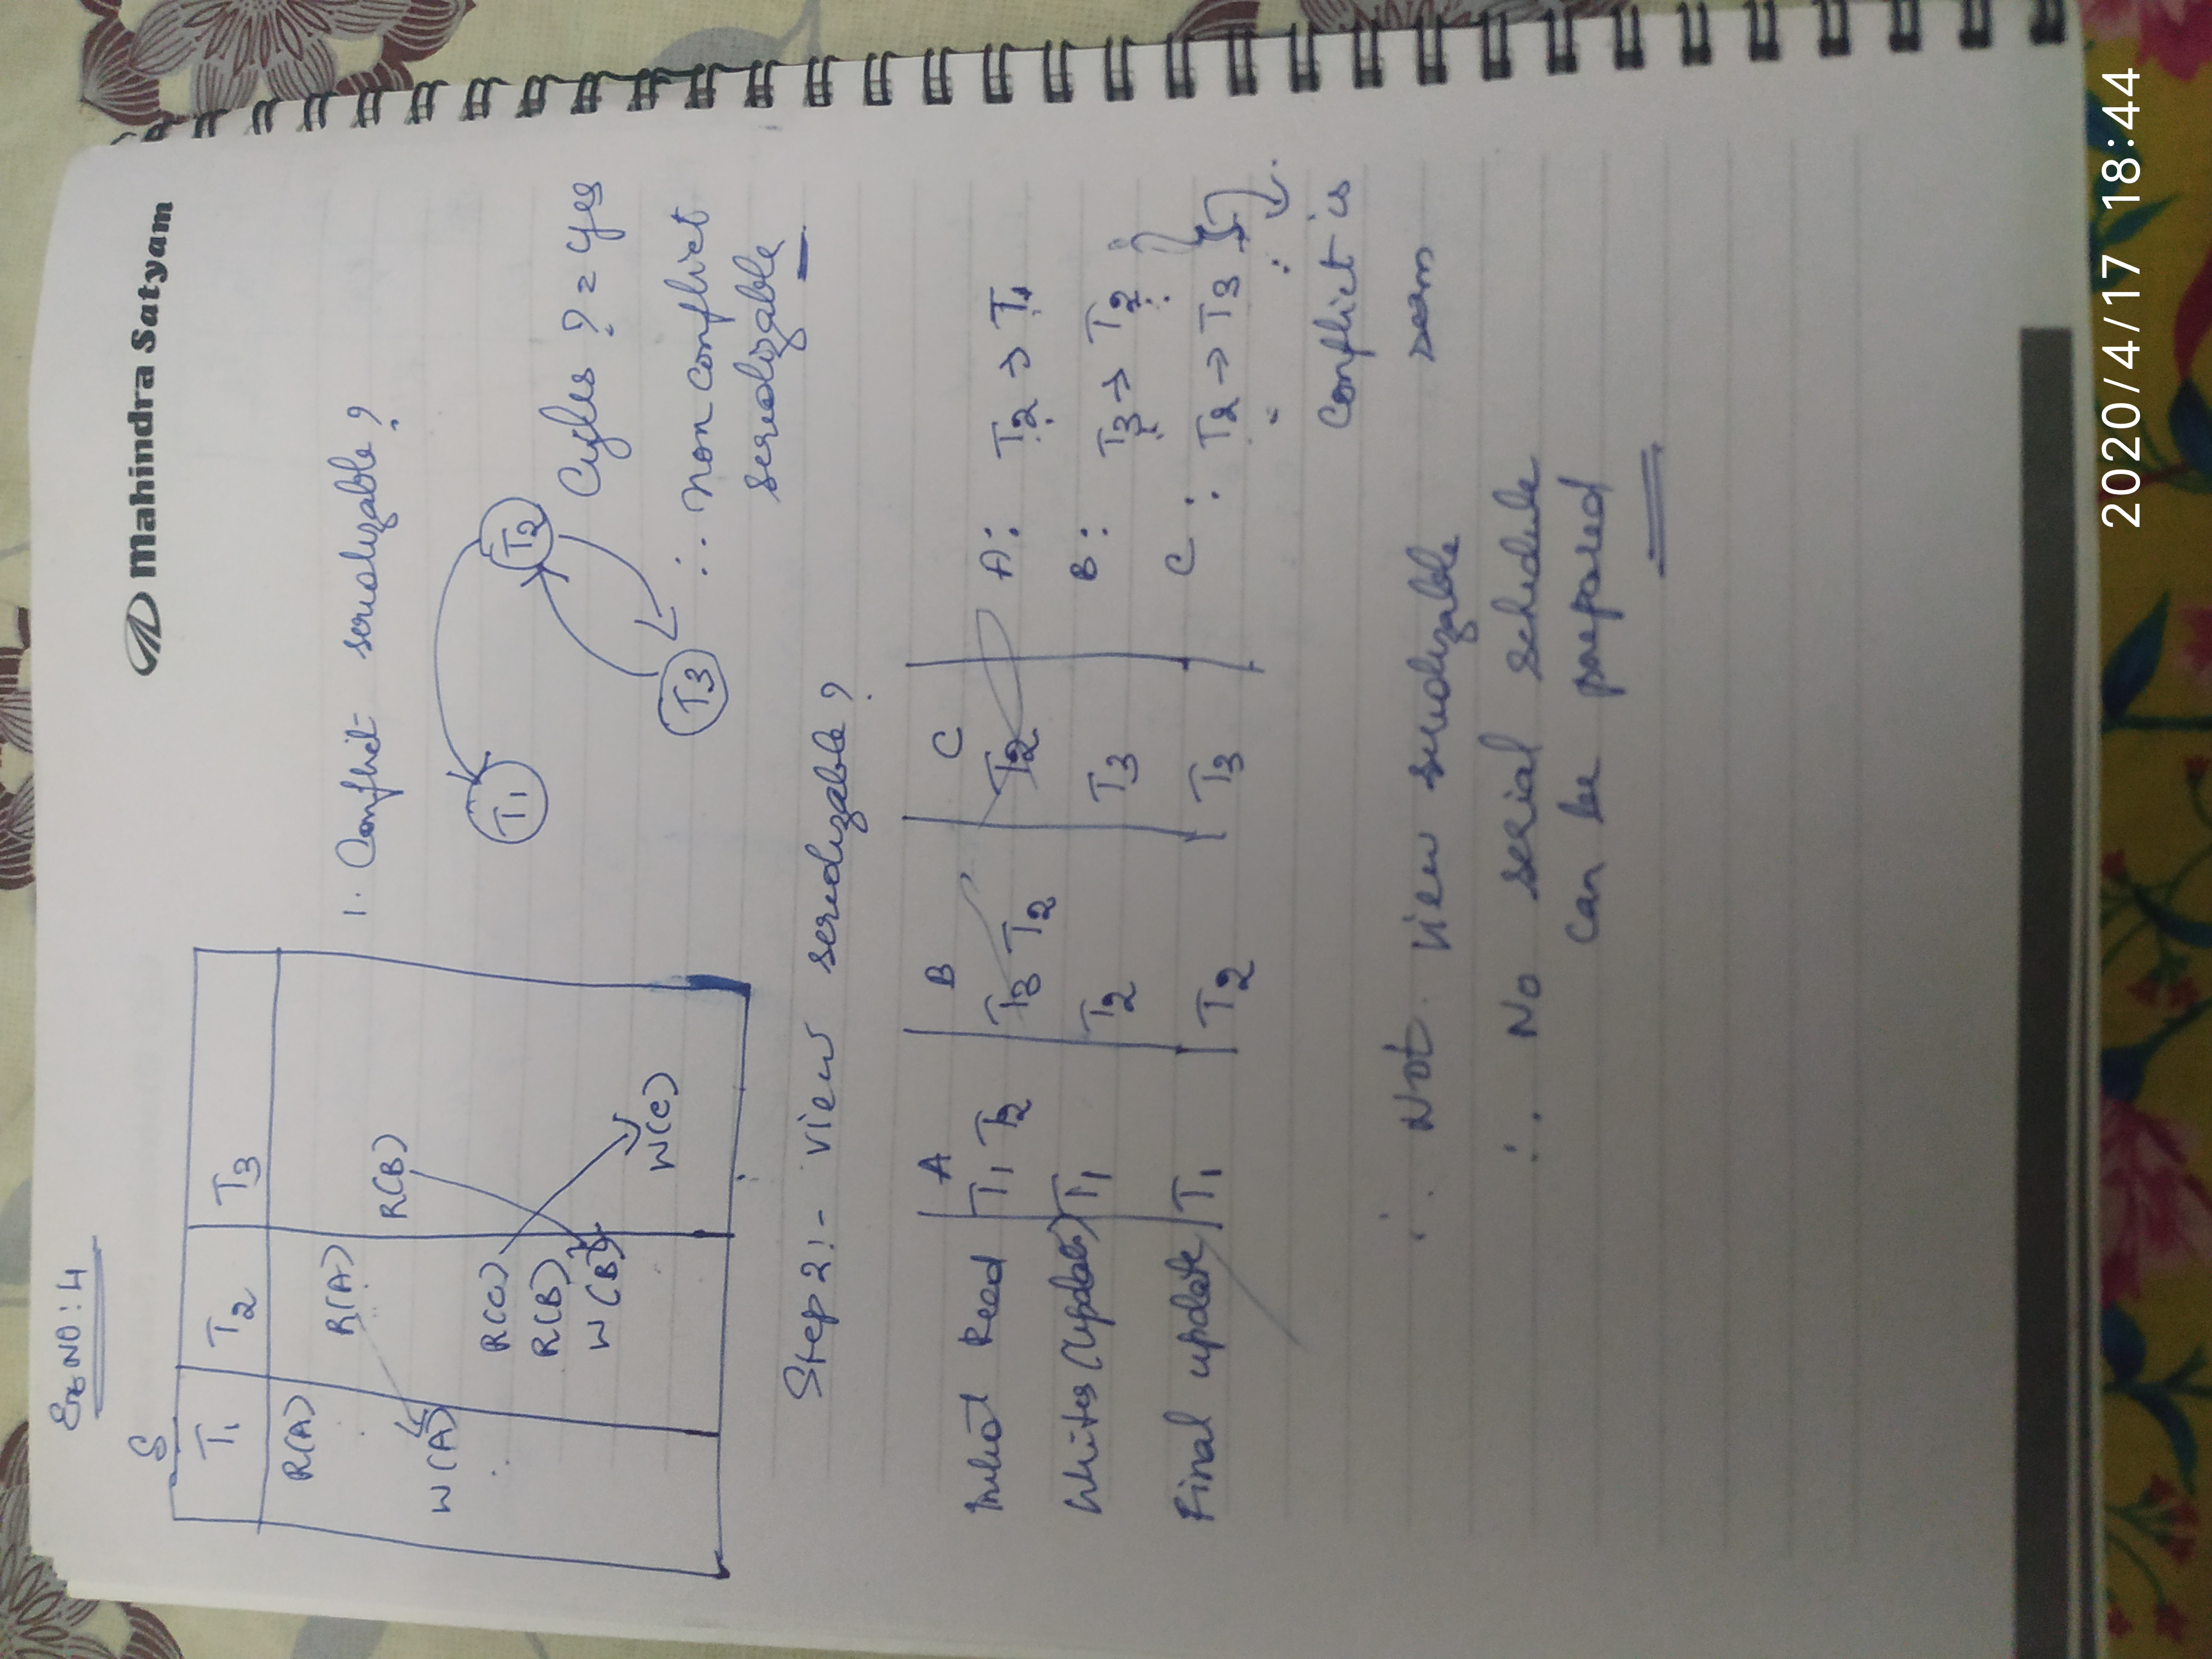 Ex NO: 4
Mahindra Satyam
S
T1 T2 T3
R(A)
R(A)
R(B)
W(A)
R(C)
R(B)
W(B)
W(C)
1. Conflict serializable?
T1 T2
T3
Cycles? = yes
∴ non conflict
serializable
Step 2:- view serializable?
A B C
Initial Read T1 T2 T3 T2 T2 A: T2 → T1
Writes (Update) T1 T2 T3 B: T3 → T2
Final update T1 T2 T3 C: T2 → T3
Conflict is
seen
∴ Not view serializable
∴ No serial schedule
can be prepared
2020/4/17 18:44